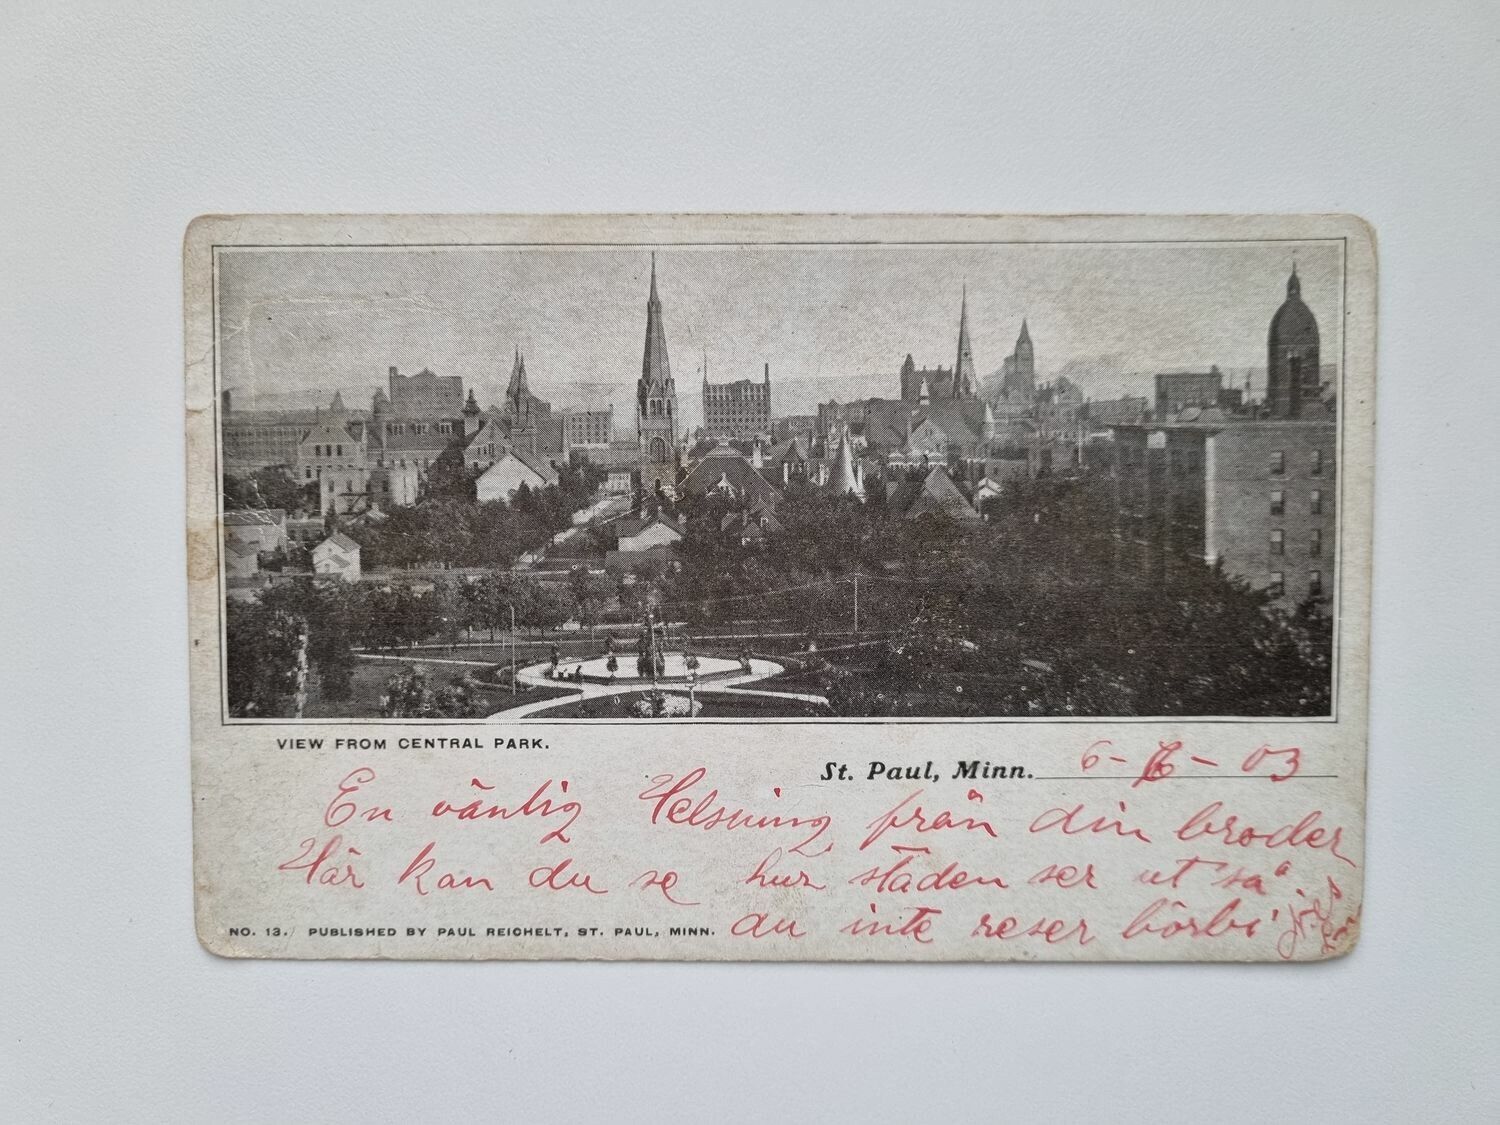 VIEW FROM CENTRAL PARK.
St. Paul, Minn. 6-6-03
En vänlig Helsning från din broder
Här kan du se hur staden ser ut så
du inte reser börbi
NO. 13. PUBLISHED BY PAUL REICHELT, ST. PAUL, MINN.